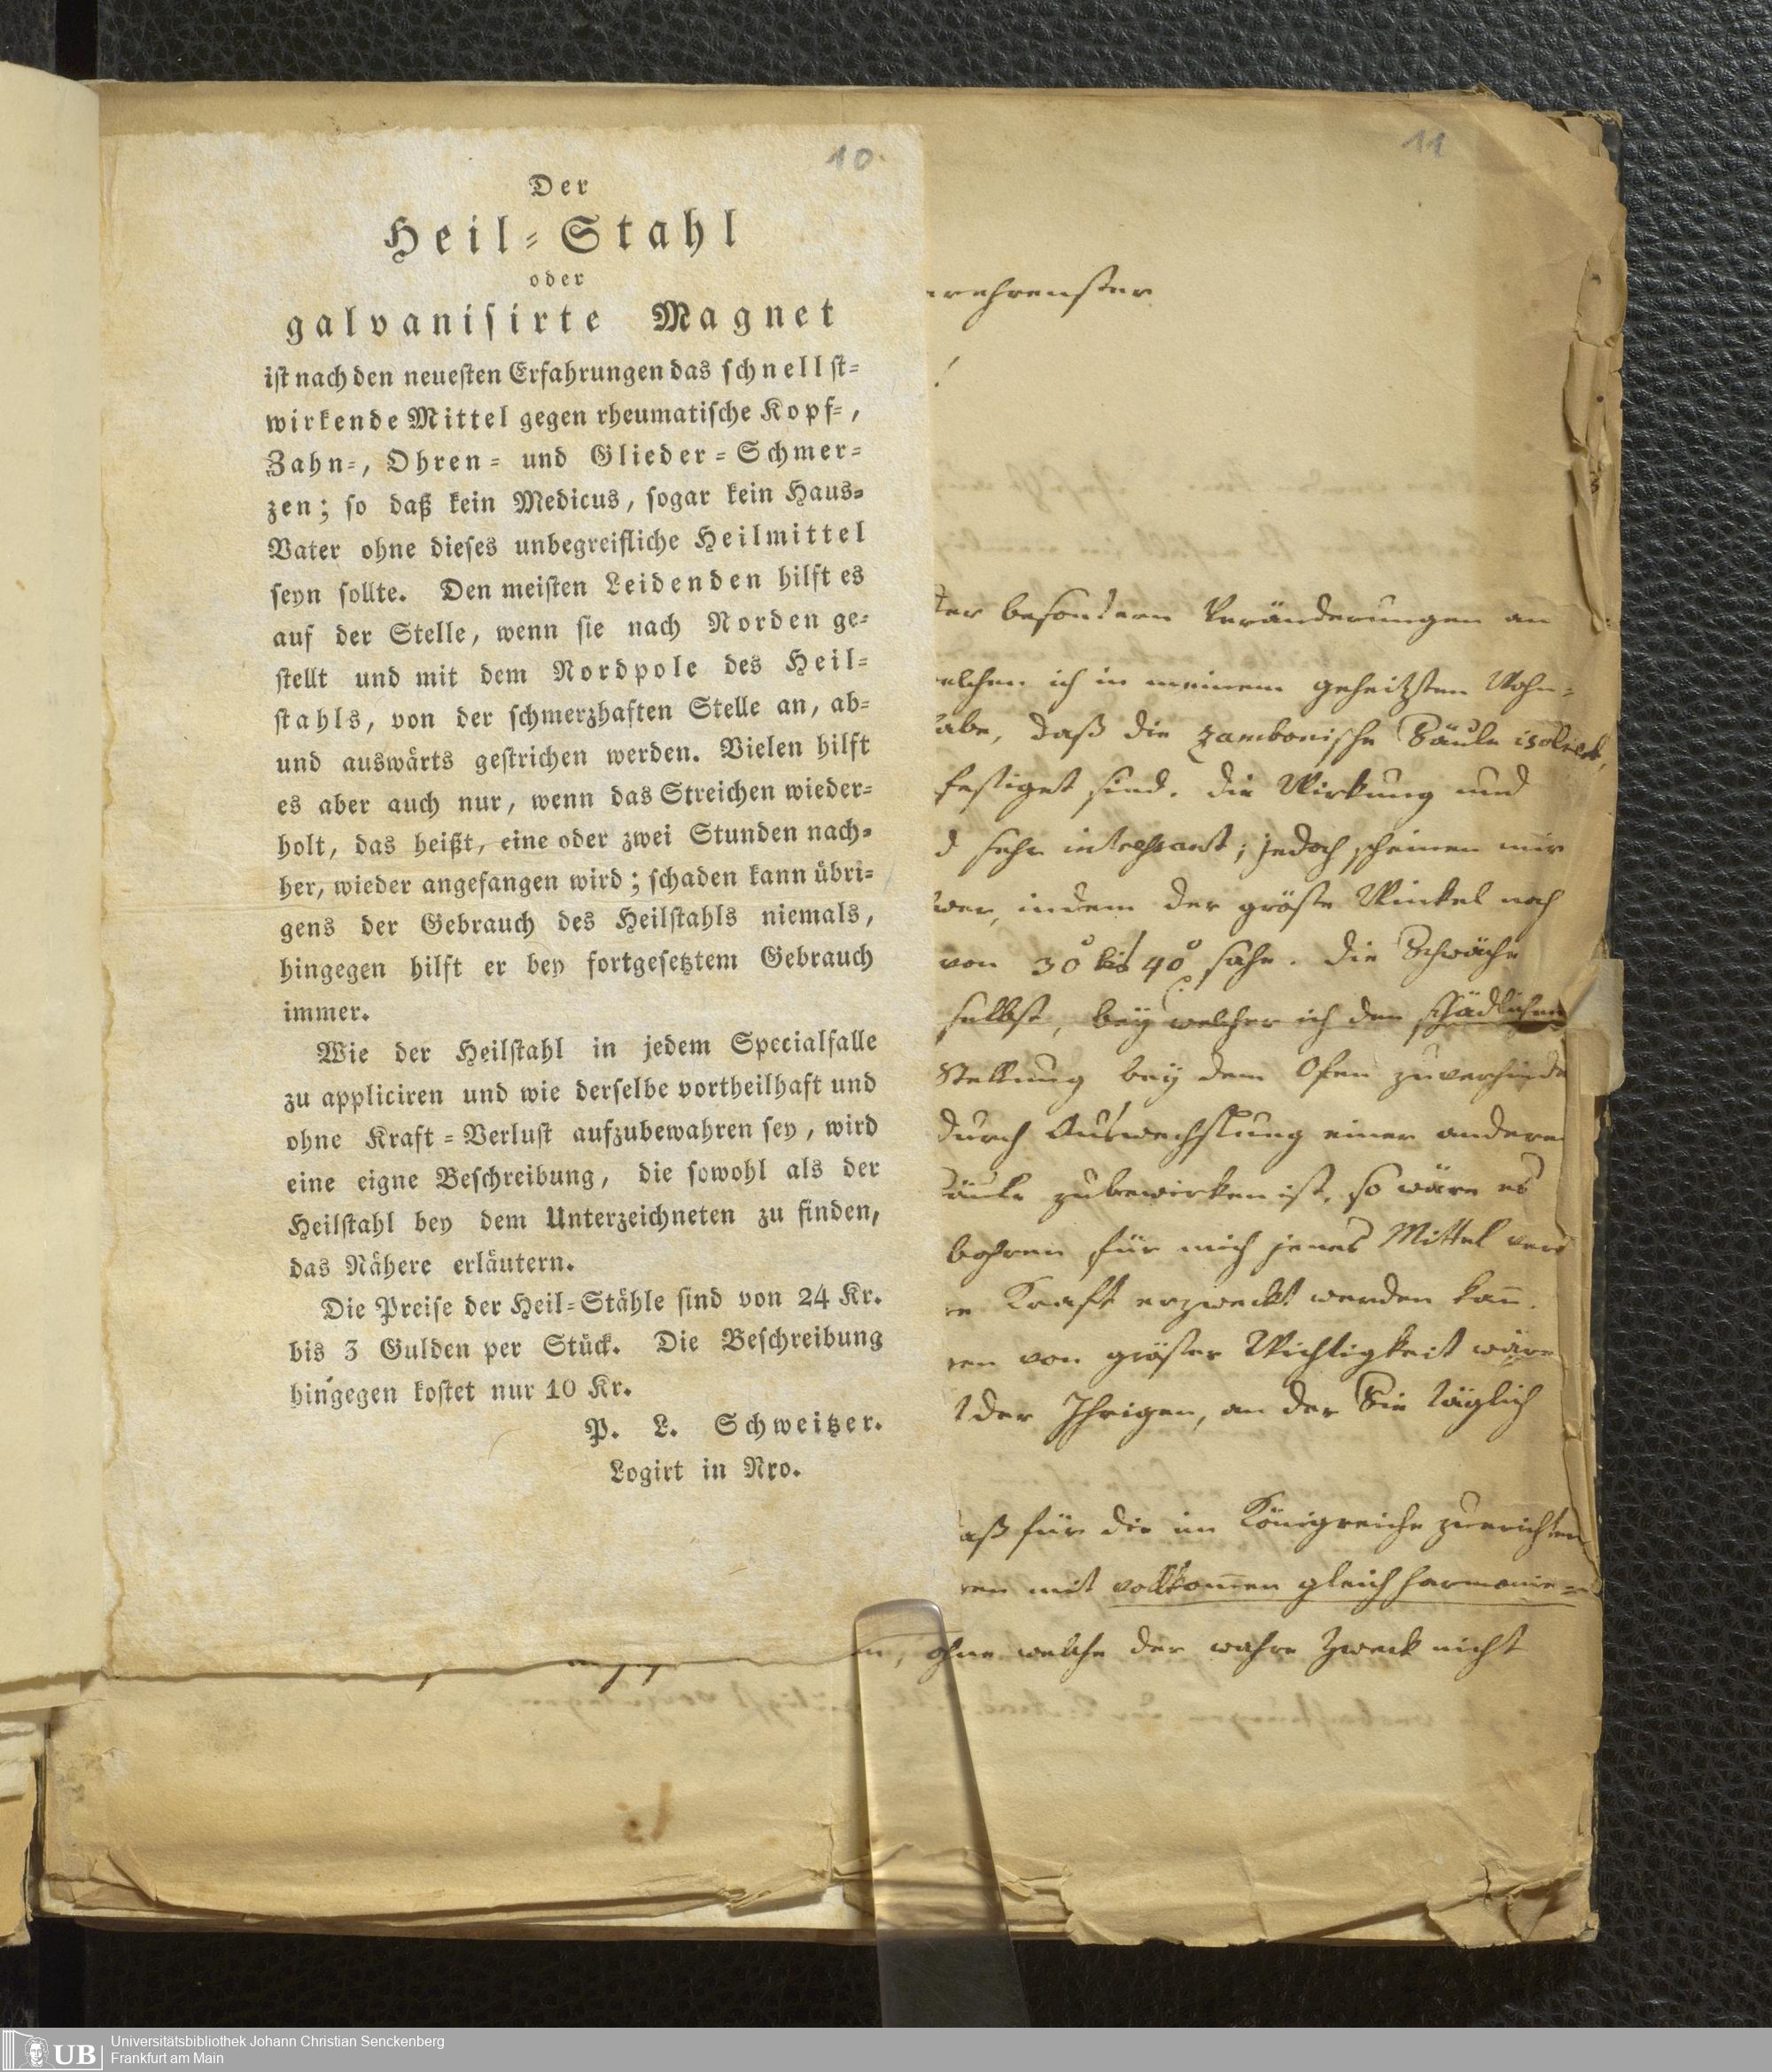 10.
Der
Heil-Stahl
oder
galvanisirte Magnet
ist nach den neuesten Erfahrungen das schnellst-
wirkende Mittel gegen rheumatische Kopf-,
Zahn-, Ohren- und Glieder-Schmer-
zen; so daß kein Medicus, sogar kein Haus-
Vater ohne dieses unbegreifliche Heilmittel
seyn sollte. Den meisten Leidenden hilft es
auf der Stelle, wenn sie nach Norden ge-
stellt und mit dem Nordpole des Heil-
stahls, von der schmerzhaften Stelle an, ab-
und auswärts gestrichen werden. Vielen hilft
es aber auch nur, wenn das Streichen wieder-
holt, das heißt, eine oder zwei Stunden nach-
her, wieder angefangen wird; schaden kann übri-
gens der Gebrauch des Heilstahls niemals,
hingegen hilft er bey fortgesetztem Gebrauch
immer.
Wie der Heilstahl in jedem Specialfalle
zu appliciren und wie derselbe vortheilhaft und
ohne Kraft-Verlust aufzubewahren sey, wird
eine eigne Beschreibung, die sowohl als der
Heilstahl bey dem Unterzeichneten zu finden,
das Nähere erläutern.
Die Preise der Heil-Stähle sind von 24 Kr.
bis 3 Gulden per Stück. Die Beschreibung
hingegen kostet nur 10 Kr.
P. L. Schweitzer.
Logirt in Nro.
11
erehrenster
!
ter besondern Veränderungen an
elchen ich in meinem geheitzten Wohn-
abe, daß die zambonische Säule isolirt,
festiget sind. die Wirkung und
d sehr interessant; jedoch scheinen mir
wer, indem der gröste Winkel noch
von 30° bis 40° sahe. die Schwäche
selbst, bey welcher ich den schädlichen
Stellung bey dem Ofen zuverhinde
durch Auswechslung einer andern
äule zubewirken ist, so wäre es
bohren für mich jenes Mittel
e Kraft erzweckt werden kañ.
en von gröster Wichtigkeit wäre
t der Ihrigen, an der Sie täglich
aß für die im Königreiche zuerichten
en mit vollkom̄en gleich harmonie=
n, ohne welche der wahre Zweck nicht
UB
Universitätsbibliothek Johann Christian Senckenberg
Frankfurt am Main